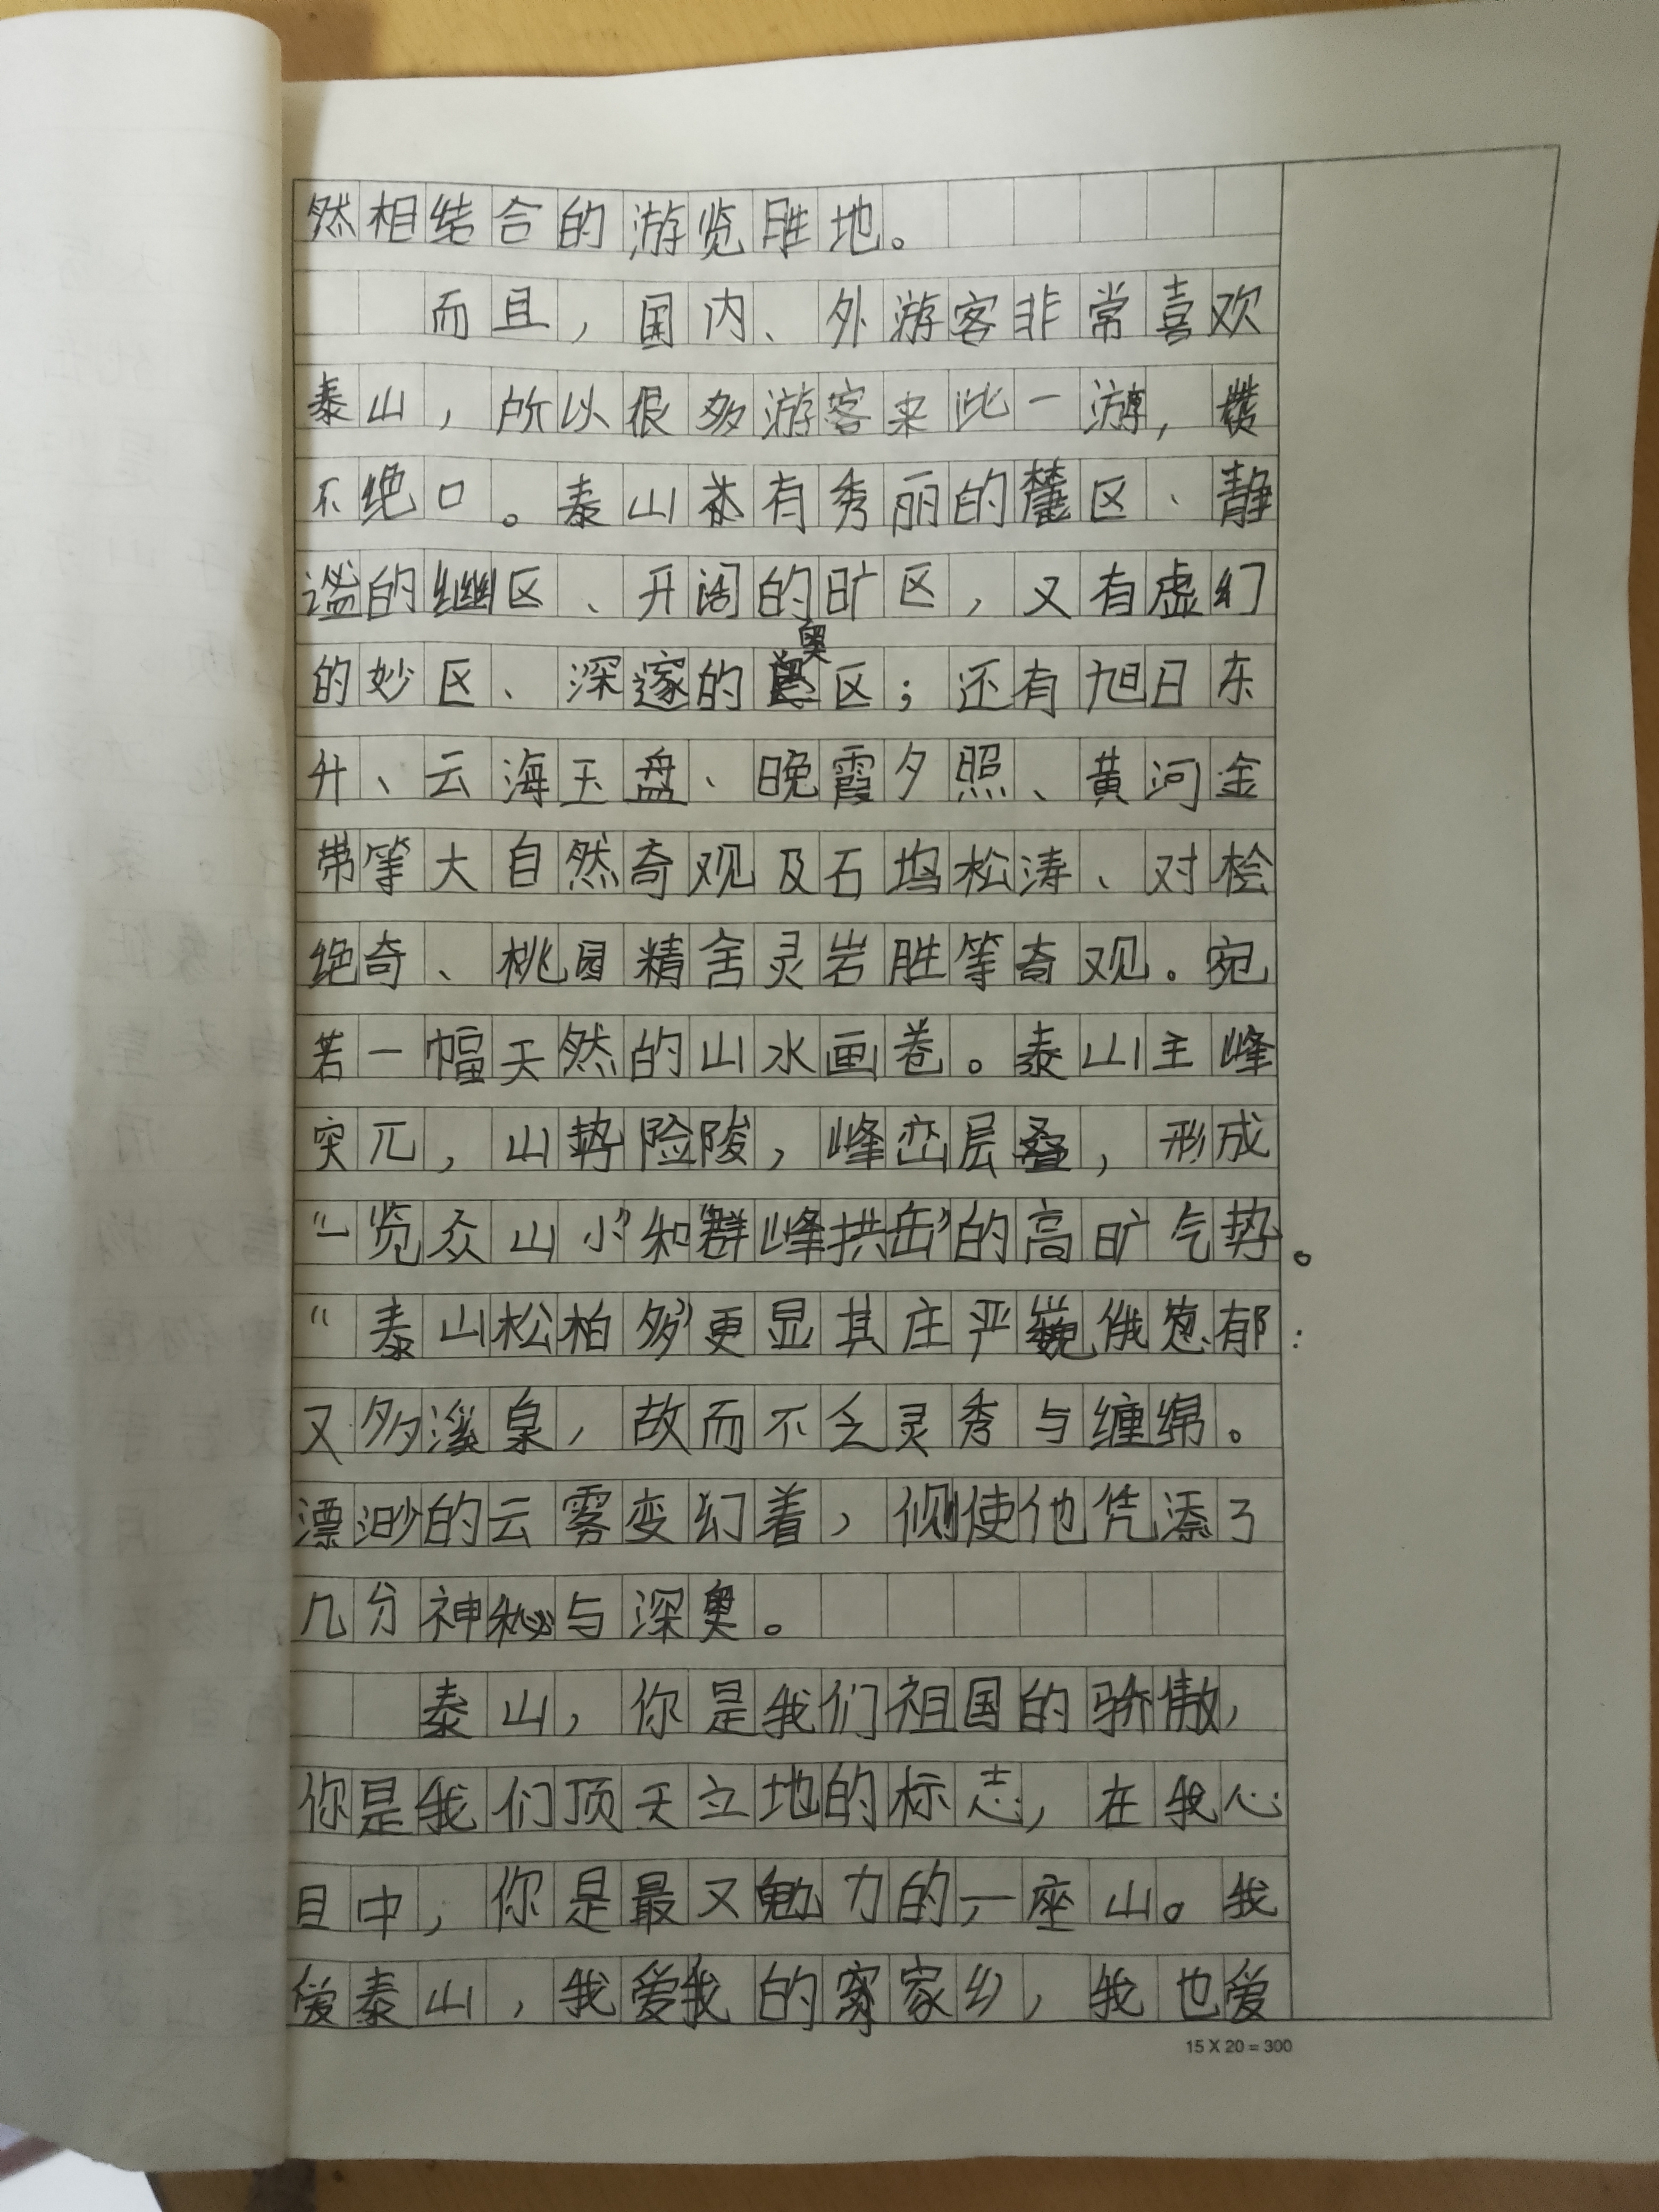 然相结合的游览胜地。
而且，国内、外游客非常喜欢
泰山，所以很多游客来此一游，赞
不绝口。泰山有秀丽的麓区、静
谧的幽区、开阔的旷区，又有虚幻
的妙区、深邃的奥区；还有旭日东
升、云海玉盘、晚霞夕照、黄河金
带等大自然奇观及石坞松涛、对桧
绝奇、桃园精舍灵岩胜等奇观。宛
若一幅天然的山水画卷。泰山主峰
突兀，山势险陵，峰峦层叠，形成
“一览众山小”和“群峰拱岳”的高旷气势。
“泰山松柏多”更显其庄严巍俄葱郁：
又多溪泉，故而不乏灵秀与缠绵。
漂渺的云雾变幻着，侧使他凭添了
几分神秘与深奥。
泰山，你是我们祖国的骄傲，
你是我们顶天立地的标志，在我心
目中，你是最又勉力的一座山。我
爱泰山，我爱我的家乡，我也爱
15 X 20 = 300